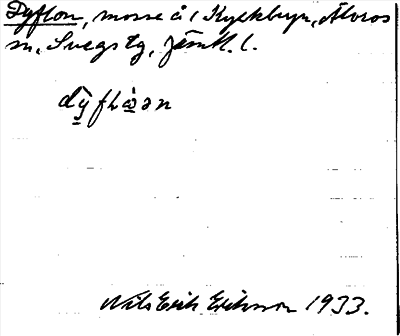 Dyflon, mosse å i Kyckbyn, Älvros
sn, Svegs tg, Jämtl. l.
dy̬flo̬ən
Nils Erik Eriksson 1933.